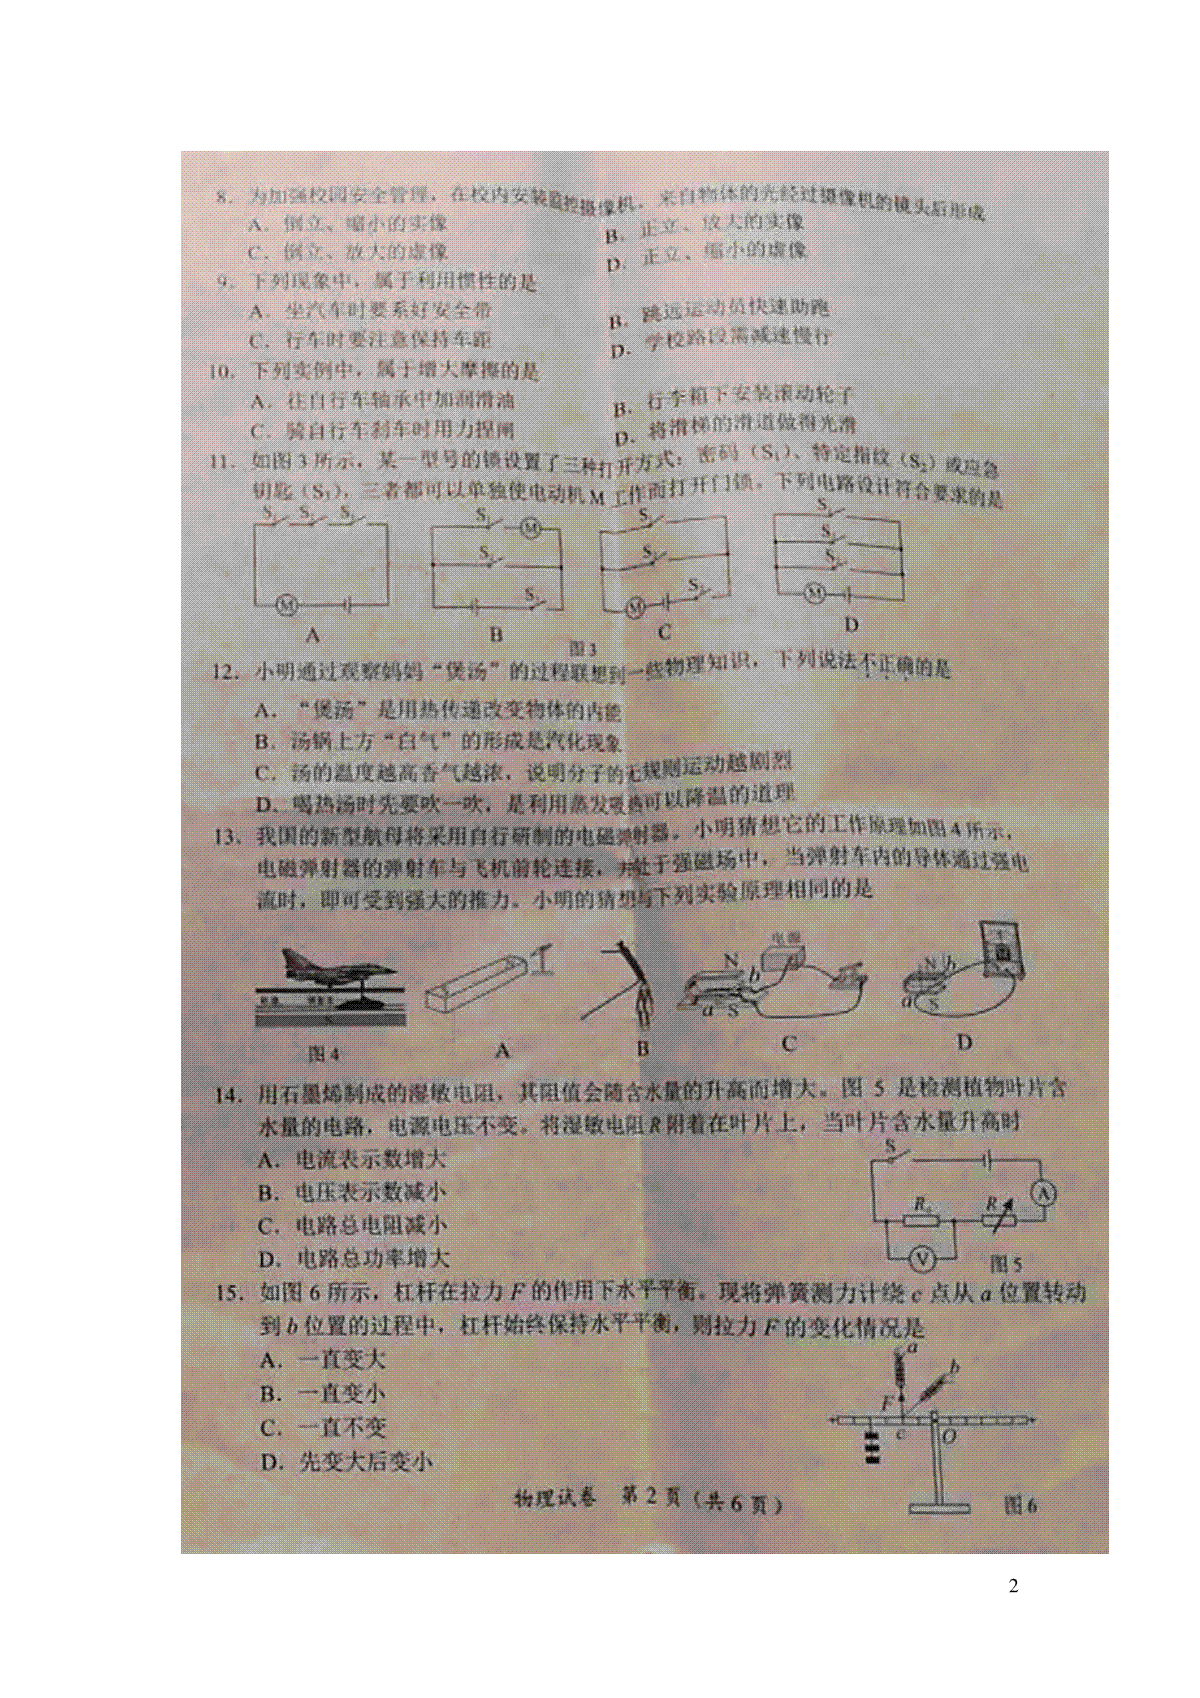 8. 为加强校园安全管理，在校内安装监控摄像机，来自物体的光经过摄像机的镜头后形成
A. 倒立、缩小的实像 B. 正立、放大的实像
C. 倒立、放大的虚像 D. 正立、缩小的虚像
9. 下列现象中，属于利用惯性的是
A. 坐汽车时要系好安全带 B. 跳远运动员快速助跑
C. 行车时要注意保持车距 D. 学校路段需减速慢行
10. 下列实例中，属于增大摩擦的是
A. 往自行车轴承中加润滑油 B. 行李箱下安装滚动轮子
C. 骑自行车刹车时用力捏闸 D. 将滑梯的滑道做得光滑
11. 如图3所示，某一型号的锁设置了三种打开方式：密码（S₁）、特定指纹（S₂）或应急
钥匙（S₃），三者都可以单独使电动机M工作而打开门锁。下列电路设计符合要求的是
S S S M A
S M S S B
S S M S C
S S S M D
图3
12. 小明通过观察妈妈“煲汤”的过程联想到一些物理知识，下列说法不正确的是
A. “煲汤”是用热传递改变物体的内能
B. 汤锅上方“白气”的形成是汽化现象
C. 汤的温度越高香气越浓，说明分子的无规则运动越剧烈
D. 喝热汤时先要吹一吹，是利用蒸发吸热可以降温的道理
13. 我国的新型航母将采用自行研制的电磁弹射器。小明猜想它的工作原理如图4所示，
电磁弹射器的弹射车与飞机前轮连接，并处于强磁场中，当弹射车内的导体通过强电
流时，即可受到强大的推力。小明的猜想与下列实验原理相同的是
电源
N b a S
N b a S
图4 A B C D
14. 用石墨烯制成的湿敏电阻，其阻值会随含水量的升高而增大。图 5 是检测植物叶片含
水量的电路，电源电压不变。将湿敏电阻R附着在叶片上，当叶片含水量升高时
A. 电流表示数增大
B. 电压表示数减小
C. 电路总电阻减小
D. 电路总功率增大
S A R₀ R V
图5
15. 如图 6 所示，杠杆在拉力 F 的作用下水平平衡。现将弹簧测力计绕 c 点从 a 位置转动
到 b 位置的过程中，杠杆始终保持水平平衡，则拉力 F 的变化情况是
A. 一直变大
B. 一直变小
C. 一直不变
D. 先变大后变小
a b F c O
图6
物理试卷 第2页（共6页）
2